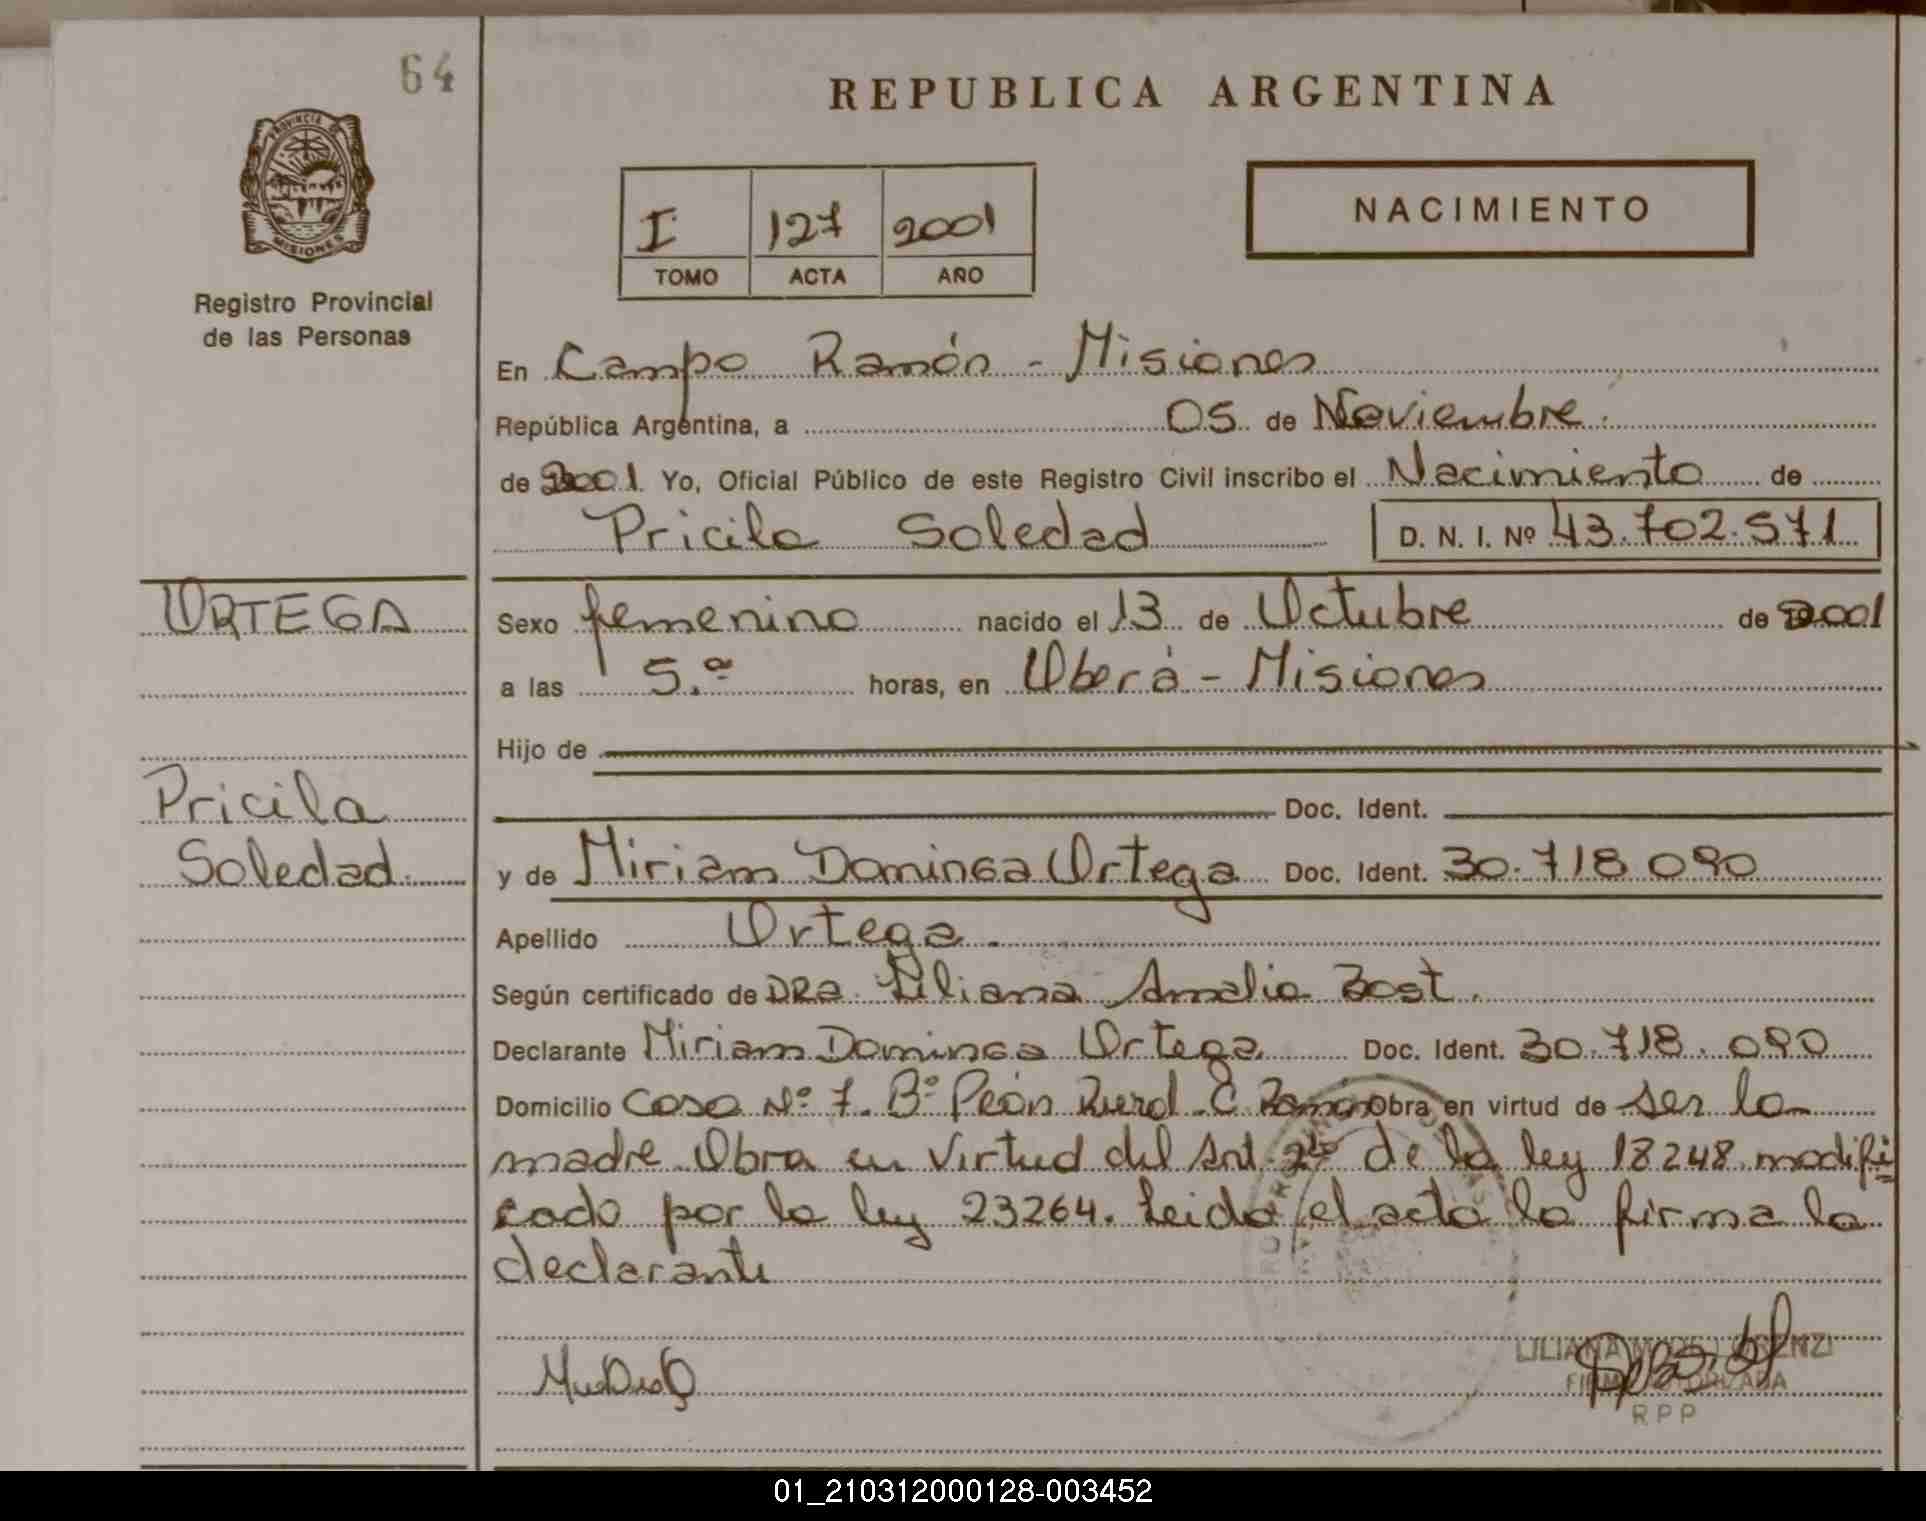 64
REPUBLICA ARGENTINA
PROVINCIA DE
MISIONES
Registro Provincial
de las Personas
I 127 2001
TOMO ACTA AÑO
NACIMIENTO
En Campo Ramón - Misiones
República Argentina, a 05 de Noviembre.
de 2001 Yo, Oficial Público de este Registro Civil inscribo el Nacimiento de
Pricila Soledad D. N. I. Nº 43.702.571
ORTEGA
Sexo femenino nacido el 13 de Octubre de 2001
a las 5.ª horas, en Oberá - Misiones
Hijo de
Doc. Ident.
Pricila
Soledad.
y de Miriam Dominga Ortega Doc. Ident. 30.718 090
Apellido Ortega.
Según certificado de DRA. Liliana Amalia Bost.
Declarante Miriam Dominga Ortega Doc. Ident. 30.718.090
Domicilio Casa Nº 7. Bº Peón Rural C Ramón obra en virtud de ser la
madre. Obra en virtud del Art. de la ley 18248 modifi
cado por la ley 23264. Leida el acta la firma la
declarante
LILIANA
FIRMA AUTORIZADA
RPP
01_210312000128-003452